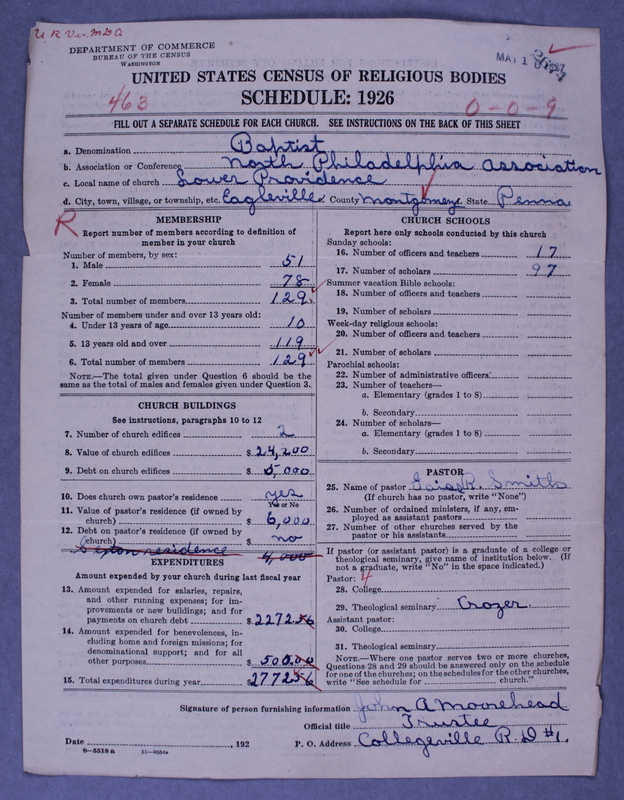 U R Ver. MLA
DEPARTMENT OF COMMERCE
BUREAU OF THE CENSUS
WASHINGTON
UNITED STATES CENSUS OF RELIGIOUS BODIES
SCHEDULE: 1926
463
0-0-9
FILL OUT A SEPARATE SCHEDULE FOR EACH CHURCH. SEE INSTRUCTIONS ON THE BACK OF THIS SHEET
a. Denomination Baptist
b. Association or Conference North Philadelphia Association
c. Local name of church Lower Providence
d. City, town, village, or township, etc. Eagleville County Montgomery State Penna
R
MEMBERSHIP
Report number of members according to definition of
member in your church
Number of members, by sex:
1. Male 51
2. Female 78
3. Total number of members 129
Number of members under and over 13 years old:
4. Under 13 years of age 10
5. 13 years old and over 119
6. Total number of members 129
NOTE.—The total given under Question 6 should be the
same as the total of males and females given under Question 3.
CHURCH BUILDINGS
See instructions, paragraphs 10 to 12
7. Number of church edifices 2
8. Value of church edifices $ 24,200
9. Debt on church edifices $ 5,000
10. Does church own pastor's residence yes
Yes or No
11. Value of pastor's residence (if owned by
church) $ 6,000
12. Debt on pastor's residence (if owned by
church) $ no
Sexton residence 4,000
EXPENDITURES
Amount expended by your church during last fiscal year
13. Amount expended for salaries, repairs,
and other running expenses; for im-
provements or new buildings; and for
payments on church debt $ 2272.56
14. Amount expended for benevolences, in-
cluding home and foreign missions; for
denominational support; and for all
other purposes 500.00
15. Total expenditures during year $ 2772.56
CHURCH SCHOOLS
Report here only schools conducted by this church
Sunday schools:
16. Number of officers and teachers 17
17. Number of scholars 97
Summer vacation Bible schools:
18. Number of officers and teachers
19. Number of scholars
Week-day religious schools:
20. Number of officers and teachers
21. Number of scholars
Parochial schools:
22. Number of administrative officers
23. Number of teachers—
a. Elementary (grades 1 to 8)
b. Secondary
24. Number of scholars—
a. Elementary (grades 1 to 8)
b. Secondary
PASTOR
25. Name of pastor Smith
(If church has no pastor, write "None")
26. Number of ordained ministers, if any, em-
ployed as assistant pastors
27. Number of other churches served by the
pastor or his assistants
If pastor (or assistant pastor) is a graduate of a college or
theological seminary, give name of institution below. (If
not a graduate, write "No" in the space indicated.)
Pastor: 4
28. College
29. Theological seminary Crozer
Assistant pastor:
30. College
31. Theological seminary
NOTE.—Where one pastor serves two or more churches,
Questions 28 and 29 should be answered only on the schedule
for one of the churches; on the schedules for the other churches,
write "See schedule for church."
Signature of person furnishing information John A Moorehead
Official title Trustee
Date , 192 P. O. Address Collegeville R. D #1.
8—5518 a 11—9554a